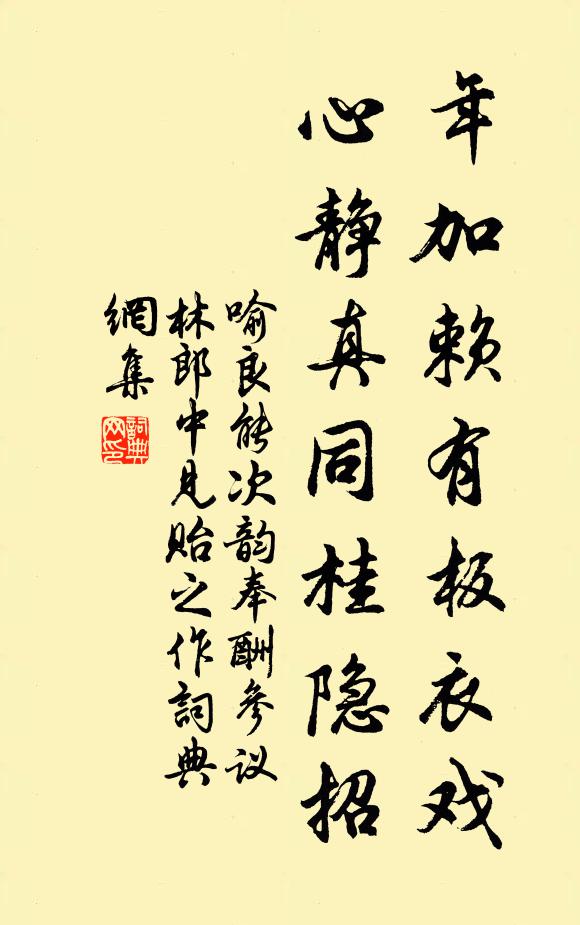 年加赖有板衣戏
心静真同桂隐招
喻良能次韵奉酬参议
林郎中见贻之作词典
網集
詞典
网印